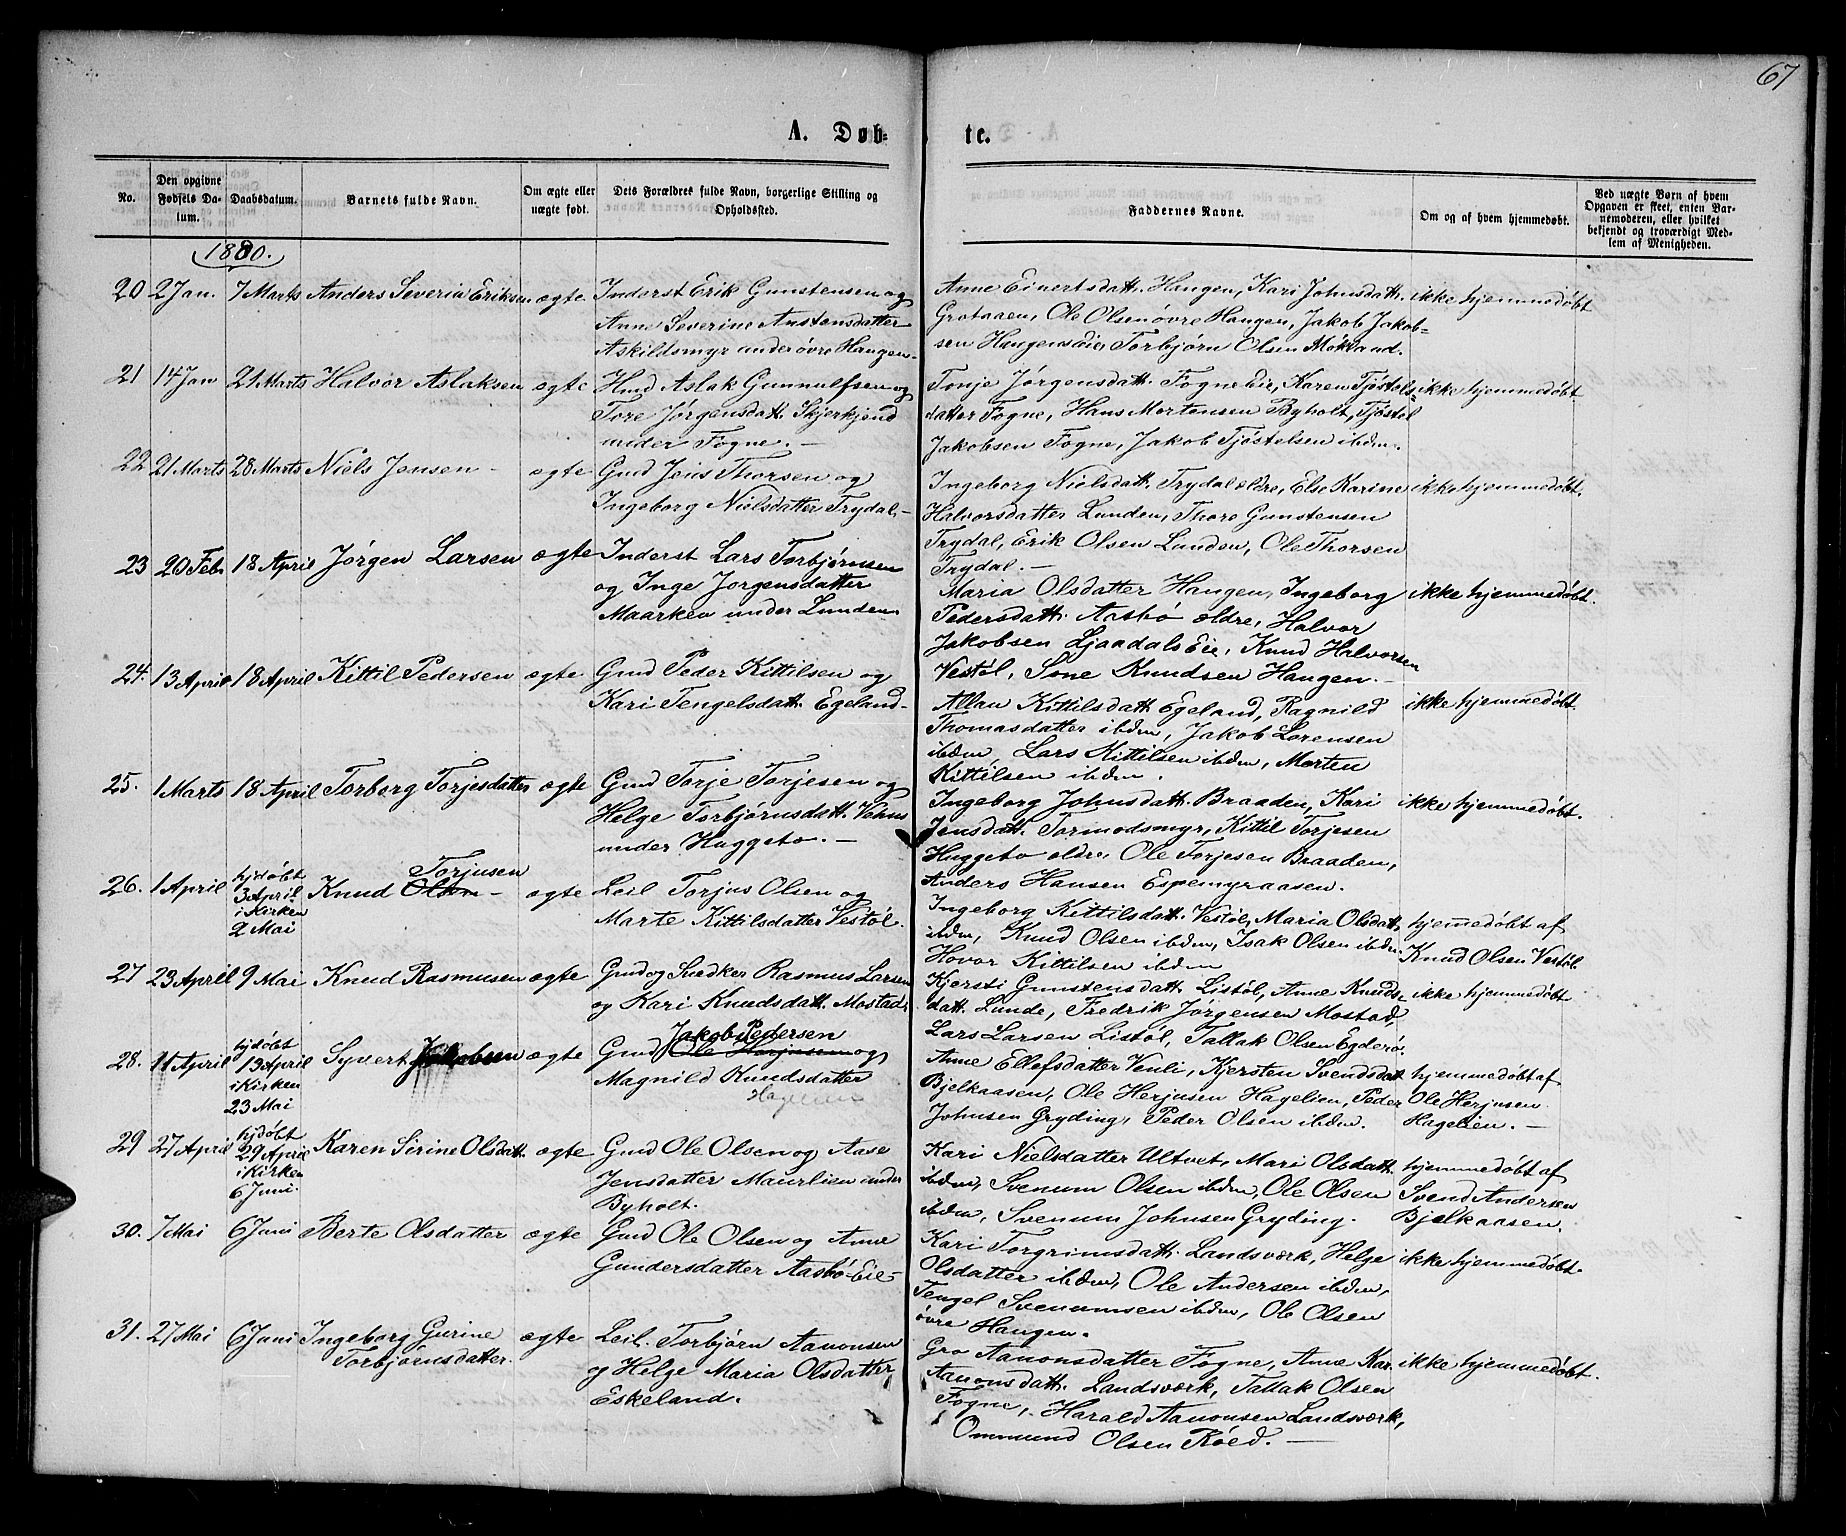 67
A. Døb- te.
No.
Den opgivne Fødsels Da- tum.
Daabsdatum.
Barnets fulde Navn.
Om ægte eller uægte født.
Dets Forældres fulde Navn, borgerlige Stilling og Opholdssted.
Faddernes Navne.
Om og af hvem hjemmedøbt.
Ved uægte Børn af hvem Opgaven er skeet, enten Bar- nemoderen, eller hvilket bekjendt og troværdigt Med- lem af Menigheden.
1880.
20 2 Jan. 7 Marts Anders Severin Eriksen ægte Inderst Erik Gunstensen og
Anne Severine Anstensdatter
Askildsmyr under øvre Haugen-
Anne Einertsdatt. Haugen, Kari Johnsdatt. ikke hjemmedøbt
Grotaaen, Ole Olsen øvre Haugen, Jakob Jakob-
sen Haugenseie, Torbjørn Olsen Mökland.
21 14 Jan 21 Marts Halvor Aslaksen ægte Gmd Aslak Gunnulfsen og
Tore Jørgensdatt. Skjerkjend
under Fogne. -
Tonje Jørgensdatt. Fogne Eie, Karen Tjöstols- ikke hjemmedøbt.
datter Fogne, Hans Mortensen Byholt, Tjöstol
Jakobsen Fogne, Jakob Tjöstelsen ibdm.
22 21 Marts 28 Marts Niels Jensen - ægte Gmd Jens Thorsen og
Ingeborg Nielsdatter Trydal-
Ingeborg Nielsdatt. Trydal ældre, Else Karine ikke hjemmedøbt.
Halvorsdatter Lunden, Thore Gunstensen
Trydal, Erik Olsen Lunden, Ole Thorsen
Trydal. -
23 20 Feb. 18 April Jörgen Larsen ægte Inderst Lars Torbjørnsen
og Inge Jorgensdatter
Maarkeo under Lunden
Maria Olsdatter Haugen, Ingeborg ikke hjemmedøbt.
Pedersdatt. Aasbö ældre, Halvor
Jakobsen Ljaadals Eie, Knud Halvorsen
Vestöl, Sone Knudsen Haugen. -
24. 13 April 18 April Kittil Pedersen ægte Gmd Peder Kittilsen og
Kari Tengelsdatt. Egeland-
Allau Kittilsdatt. Egeland, Ragnild ikke hjemmedøbt.
Thomasdatter ibdm, Jakob Lorensen
ibdm, Lars Kittilsen ibdm, Morten
Kittilsen ibdm.
25. 1 Marts 18 April Torborg Torjesdatter ægte Gmd Torje Torjesen og
Helge Torbjörnsdatt. Vehus
under Huggeto. -
Ingeborg Johnsdatt. Braaden, Kari ikke hjemmedøbt.
Jensdatt. Tormodsmyr, Kittil Torjesen
Huggeto ældre, Ole Torjesen Braaden,
Anders Hansen Espemyraasen.
26. 1 April hjdøbt 3 April i Kirken 2 Mai Knud Olsen Torjusen - ægte Leil. Torjus Olsen og
Marte Kittilsdatter Vestöl.
Ingeborg Kittilsdatt. Vestöl, Maria Olsdatt. hjemmedøbt af
ibdm, Knud Olsen ibdm, Isak Olsen ibdm Knud Olsen Vestöl.
Hovor Kittilsen ibdm
27 23 April 9 Mai Knud Rasmusen ægte Gmd og Snedker Rasmus Larsen
og Kari Knudsdatt. Mostad.
Kjersti Gunstensdatt. Listöl, Anne Knuds- ikke hjemmedøbt
datt. Lunde, Fredrik Jörgensen Mostad,
Lars Larsen Listöl, Tallak Olsen Egderö.
28. 11 April hjdøbt 13 April i Kirken 23 Mai Syvert Jakobsen ægte Gmd Jakob Pedersen Ole Herjusen og
Magnild Knudsdatter
Hagelien
Anne Ellefsdatter Venli, Kjersten Svendsdatt. hjemmedøbt af
Bjelkaasen, Ole Herjusen Hagelien, Peder Ole Herjusen
Johnsen Gryding, Peder Olsen ibdm. Hagelien. -
29 27 April hjdøbt 29 April i Kirken 6 Juni. Karen Sirine Olsdatt. ægte Gmd Ole Olsen og Aase
Jensdatter Maurlien under
Byholt.
Kari Nielsdatter Ultvet, Mari Olsdatt. hjemmedøbt af
ibdm, Svenum Olsen ibdm, Ole Olsen Svend Andersen
ibdm, Svenum Johnsen Gryding. Bjelkaasen.
30. 7 Mai 6 Juni Berte Olsdatter ægte Gmd Ole Olsen og Anne
Gundersdatter Aasbö-Eie-
Kari Torgrimsdatt. Landsværk, Helge ikke hjemmedøbt.
Olsdatter ibdm, Ole Andersen ibdm,
Tengel Svenumsen ibdm, Ole Olsen
øvre Haugen.
31. 27 Mai 6 Juni Ingeborg Gurine Torbjörnsdatter. ægte Leil. Torbjörn Aanonsen
og Helge Maria Olsdatter
Eskeland.
Gro Aanonsdatter Fogne, Anne Kar. ikke hjemmedøbt.
Aanonsdatt. Landsværk, Tallak Olsen
Fogne, Harald Aanonsen Landsværk,
Ommund Olsen Röed. -